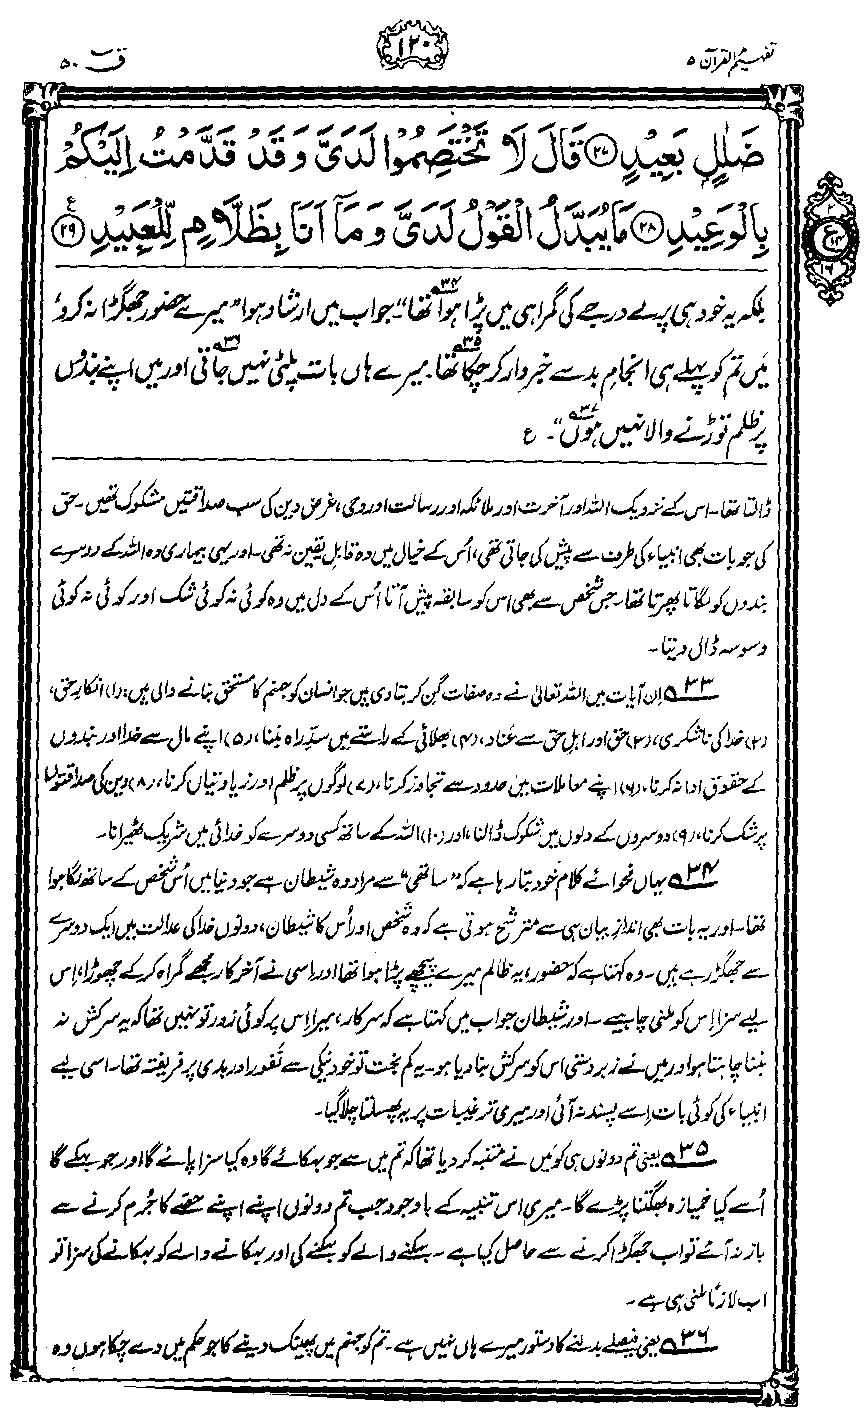 تفہیم القرآن ۵
۱۲۰
قٓ ۵۰
ضَلٰلٍۭ بَعِيْدٍ ۲۷ قَالَ لَا تَخْتَصِمُوْا لَدَىَّ وَ قَدْ قَدَّمْتُ اِلَيْكُمْ
بِالْوَعِيْدِ ۲۸ مَا يُبَدَّلُ الْقَوْلُ لَدَىَّ وَ مَاۤ اَنَا بِظَلَّامٍ لِّلْعَبِيْدِ ۲۹ ع
بلکہ یہ خود ہی پرلے درجے کی گمراہی میں پڑا ہوا تھا“۔۳۴ جواب میں ارشاد ہوا ”میرے حضور جھگڑا نہ کرو،
میں تم کو پہلے ہی انجامِ بد سے خبردار کر چکا تھا۔۳۵ میرے ہاں بات پلٹی نہیں جاتی۳۶ اور میں اپنے بندوں
پر ظلم توڑنے والا نہیں ہوں“۳۷۔ ع
ڈالتا تھا۔ اس کے نزدیک اللہ اور آخرت اور ملائکہ اور رسالت اور وحی، غرض دین کی سب صداقتیں مشکوک تھیں۔ حق
کی جو بات بھی انبیاء کی طرف سے پیش کی جاتی تھی، اُس کے خیال میں وہ قابلِ یقین نہ تھی۔ اور یہی بیماری وہ اللہ کے دوسرے
بندوں کو لگاتا پھرتا تھا۔ جس شخص سے بھی اس کو سابقہ پیش آتا اُس کے دل میں وہ کوئی نہ کوئی شک اور کوئی نہ کوئی
وسوسہ ڈال دیتا۔
۳۳ ان آیات میں اللہ تعالیٰ نے وہ صفات گن کر بتا دی ہیں جو انسان کو جہنم کا مستحق بنانے والی ہیں: (۱) انکارِ حق،
(۲) خدا کی ناشکری، (۳) حق اور اہلِ حق سے عناد، (۴) بھلائی کے راستے میں سدِّراہ بننا، (۵) اپنے مال سے خدا اور بندوں
کے حقوق ادا نہ کرنا، (۶) اپنے معاملات میں حدود سے تجاوز کرنا، (۷) لوگوں پر ظلم اور زیادتیاں کرنا، (۸) دین کی صداقتوں
پر شک کرنا، (۹) دوسروں کے دلوں میں شکوک ڈالنا، اور (۱۰) اللہ کے ساتھ کسی دوسرے کو خدائی میں شریک ٹھیرانا۔
۳۴ یہاں فحوائے کلام خود بتا رہا ہے کہ ”ساتھی“ سے مراد وہ شیطان ہے جو دنیا میں اُس شخص کے ساتھ لگا ہوا
تھا۔ اور یہ بات بھی اندازِ بیان ہی سے مترشح ہوتی ہے کہ وہ شخص اور اُس کا شیطان، دونوں خدا کی عدالت میں ایک دوسرے
سے جھگڑ رہے ہیں۔ وہ کہتا ہے کہ حضور، یہ ظالم میرے پیچھے پڑا ہوا تھا اور اسی نے آخر کار مجھے گمراہ کر کے چھوڑا، اِس
لیے سزا اِس کو ملنی چاہیے۔ اور شیطان جواب میں کہتا ہے کہ سرکار، میرا اِس پر کوئی زور تو نہیں تھا کہ یہ سرکش نہ
بننا چاہتا ہو اور میں نے زبردستی اس کو سرکش بنا دیا ہو۔ یہ کم بخت تو خود نیکی سے نفور اور بدی پر فریفتہ تھا۔ اسی لیے
انبیاء کی کوئی بات اِسے پسند نہ آئی اور میری ترغیبات پر یہ پھسلتا چلا گیا۔
۳۵ یعنی تم دونوں ہی کو میں نے متنبہ کر دیا تھا کہ تم میں سے جو بہکائے گا وہ کیا سزا پائے گا اور جو بہکے گا
اُسے کیا خمیازہ بھگتنا پڑے گا۔ میری اس تنبیہ کے باوجود جب تم دونوں اپنے اپنے حصّے کا جُرم کرنے سے
باز نہ آئے تو اب جھگڑا کرنے سے حاصل کیا ہے۔ بہکنے والے کو بہکنے کی اور بہکانے والے کو بہکانے کی سزا تو
اب لازماً ملنی ہی ہے۔
۳۶ یعنی فیصلے بدلنے کا دستور میرے ہاں نہیں ہے۔ تم کو جہنم میں پھینک دینے کا جو حکم میں دے چکا ہوں وہ